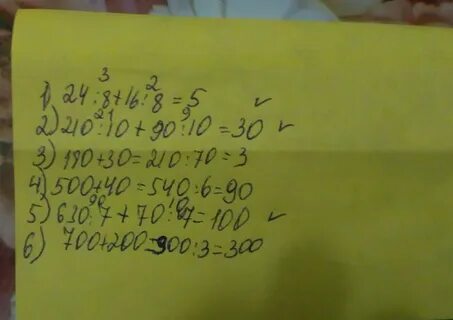 3 2
1) 24:8+16:8=5 ✓
21 9
2) 210:10+90:10=30 ✓
3) 180+30=210:70=3
4) 500+40=540:6=90
90 10
5) 630:7+70:7=100 ✓
6) 700+200=900:3=300